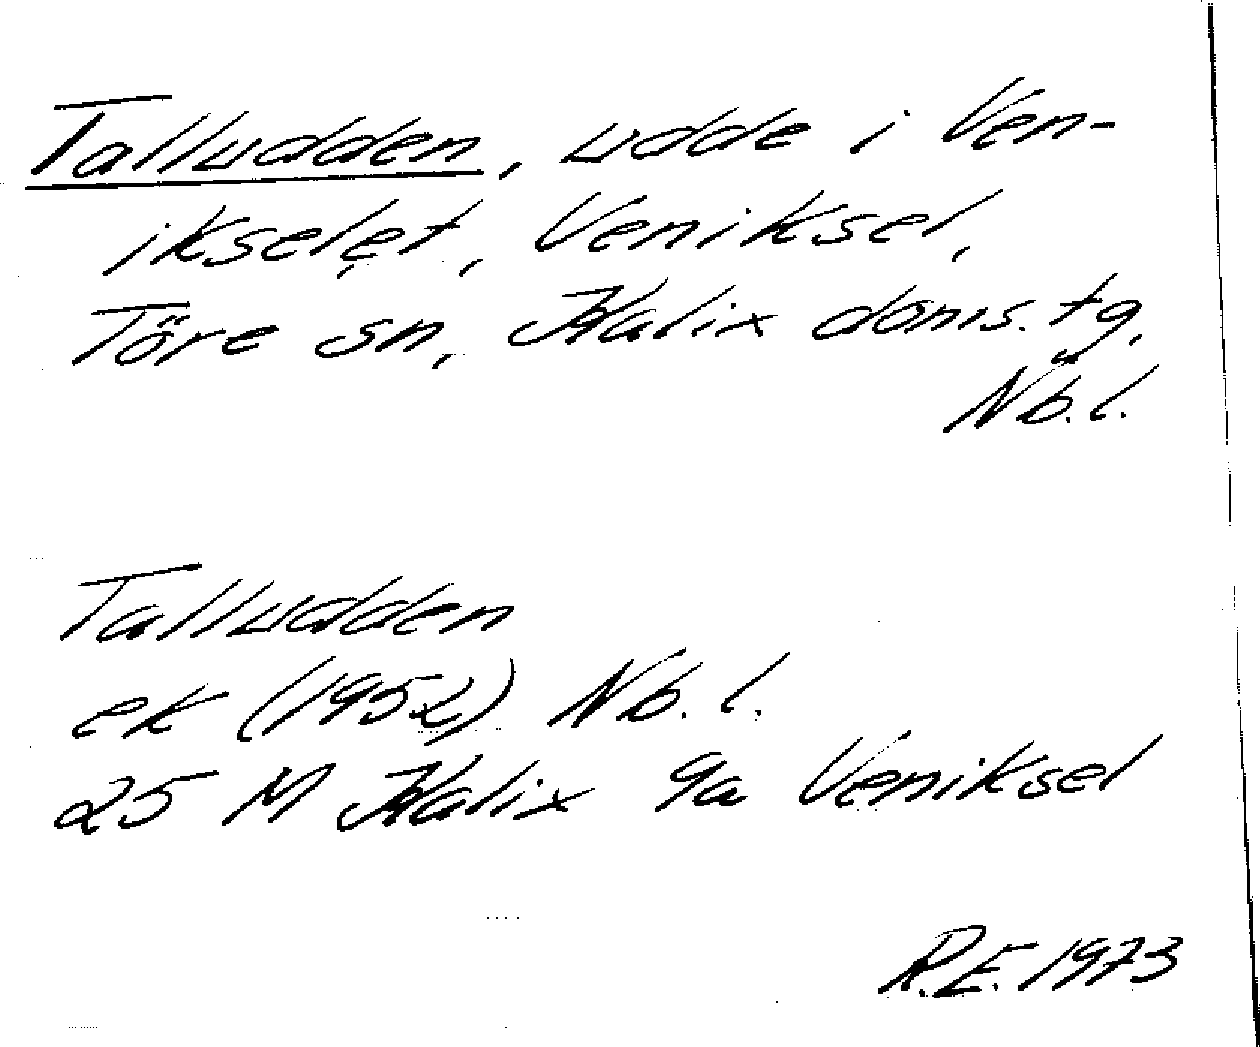 Talludden, udde i Ven-
ikselet, Veniksel,
Töre sn, Kalix doms. tg,
Nb. l.
Talludden
ek (1952) Nb. l.
25 M Kalix 9a Veniksel
R.E. 1973